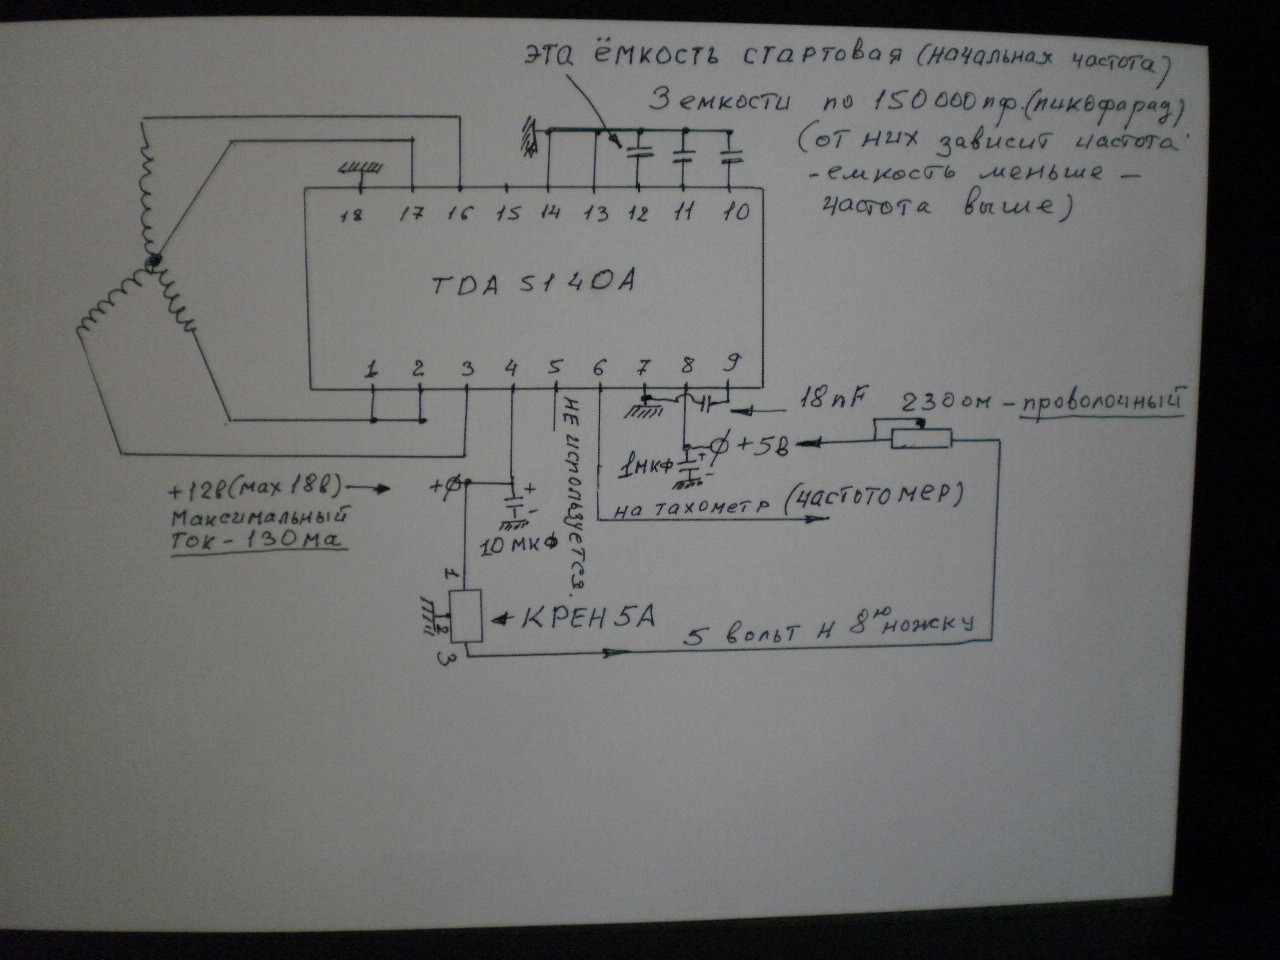 эта ёмкость стартовая (начальная частота)
3 емкости по 150 000 пф. (пикофарад)
(от них зависит частота
- емкость меньше -
частота выше)
18 17 16 15 14 13 12 11 10
TDA 5140A
1 2 3 4 5 6 7 8 9
18 nF
230 ом - проволочный
+5в
1мкф
+
-
+12в (мах 18в)
Максимальный
ток - 130 ма
+
+
-
10 мкф
не используется.
на тахометр (частотомер)
1
2
3
КРЕН 5А
5 вольт н 8ю ножку